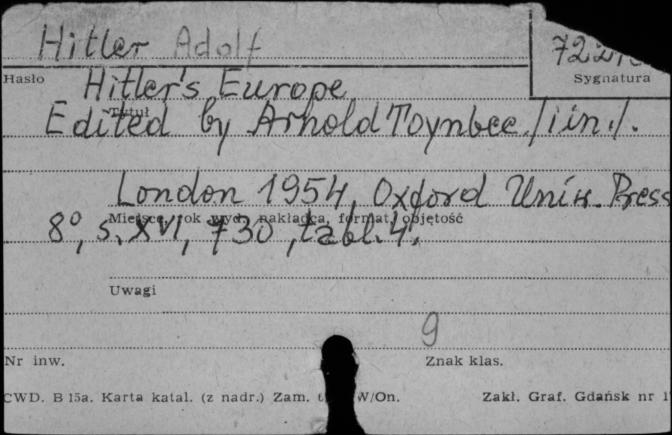 Hitler Adolf
Hasło
Sygnatura
Hitler's Europe
Tytuł
Edited by Arnold Toynbee /i in./.
London 1954, Oxford Univ. Press
Miejsce, rok wyd., nakładca, format, objętość
8°, s. XVI, 730, tabl. 4.
Uwagi
9
Nr inw.
Znak klas.
CWD. B 15a. Karta katal. (z nadr.) Zam. W/On.
Zakł. Graf. Gdańsk nr